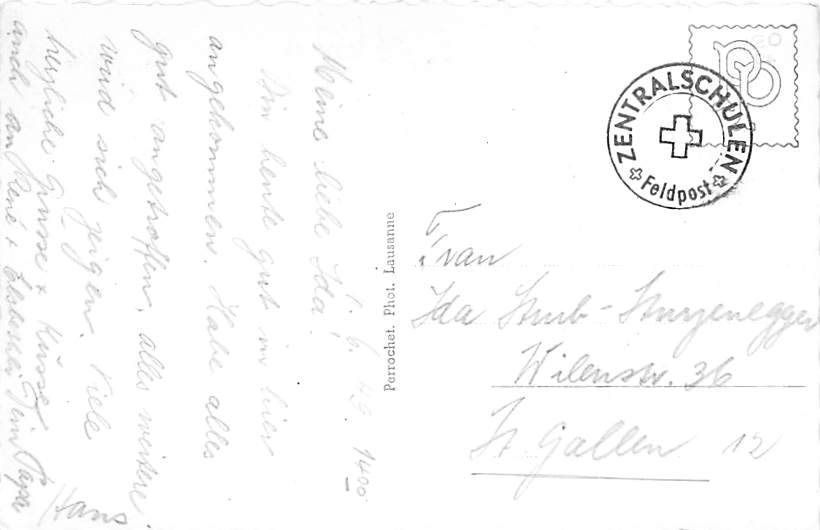 1. 6. 49. 1400
Meine liebe Ida!
Bin heute gut in hier
angekommen. Habe alles
gut angetroffen, alles weitere
wird sich zeigen. Viele
herzliche Grüsse + Küsse
auch an René + Elsbethli Dein Papa
Hans
Perrochet. Phot. Lausanne
ZENTRALSCHULEN
Feldpost
Frau
Ida Staub-Sturzenegger
Wilenstr. 36
St Gallen 12